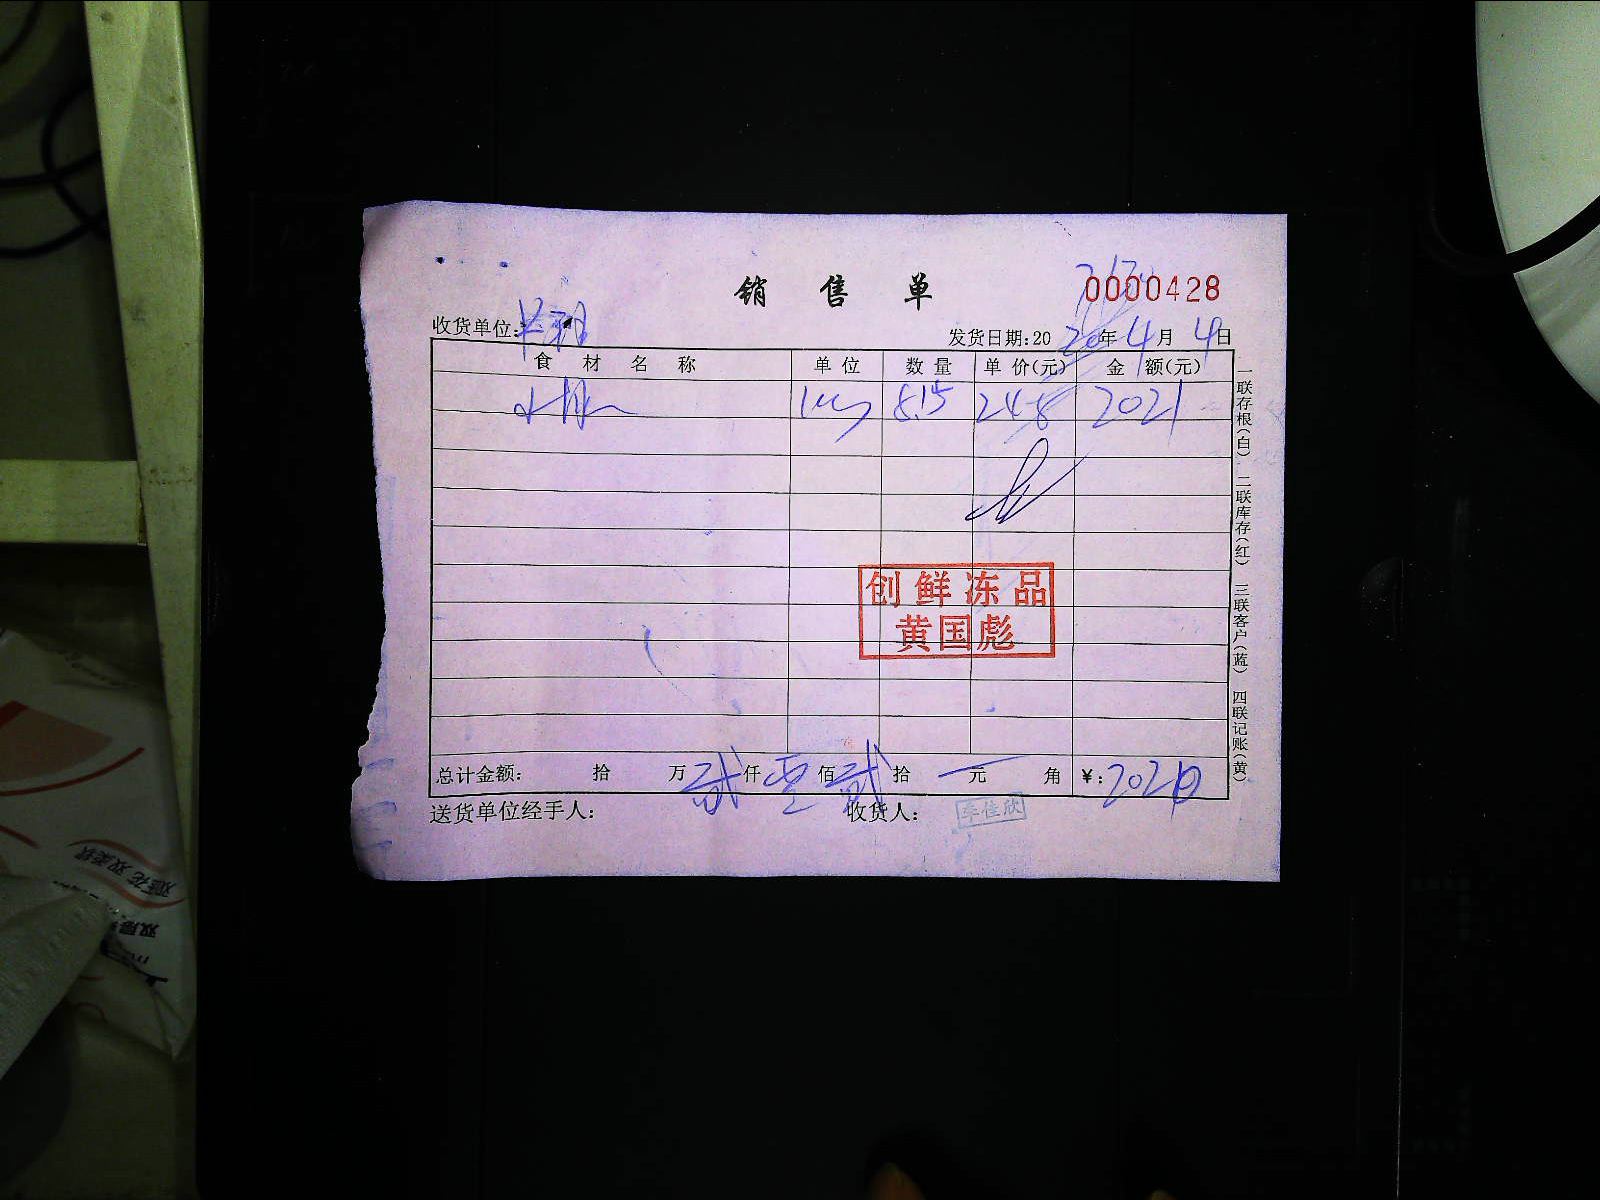 销售单
0000428
收货单位:
发货日期:2020年4月4日
食材名称 单位 数量 单价(元) 金额(元)
8.15 248 2021
创鲜冻品
黄国彪
总计金额: 拾 万 贰 仟 零 佰 贰 拾 一 元 角 ¥:2021
送货单位经手人: 收货人: 李佳欣
一联存根(白) 二联库存(红) 三联客户(蓝) 四联记账(黄)